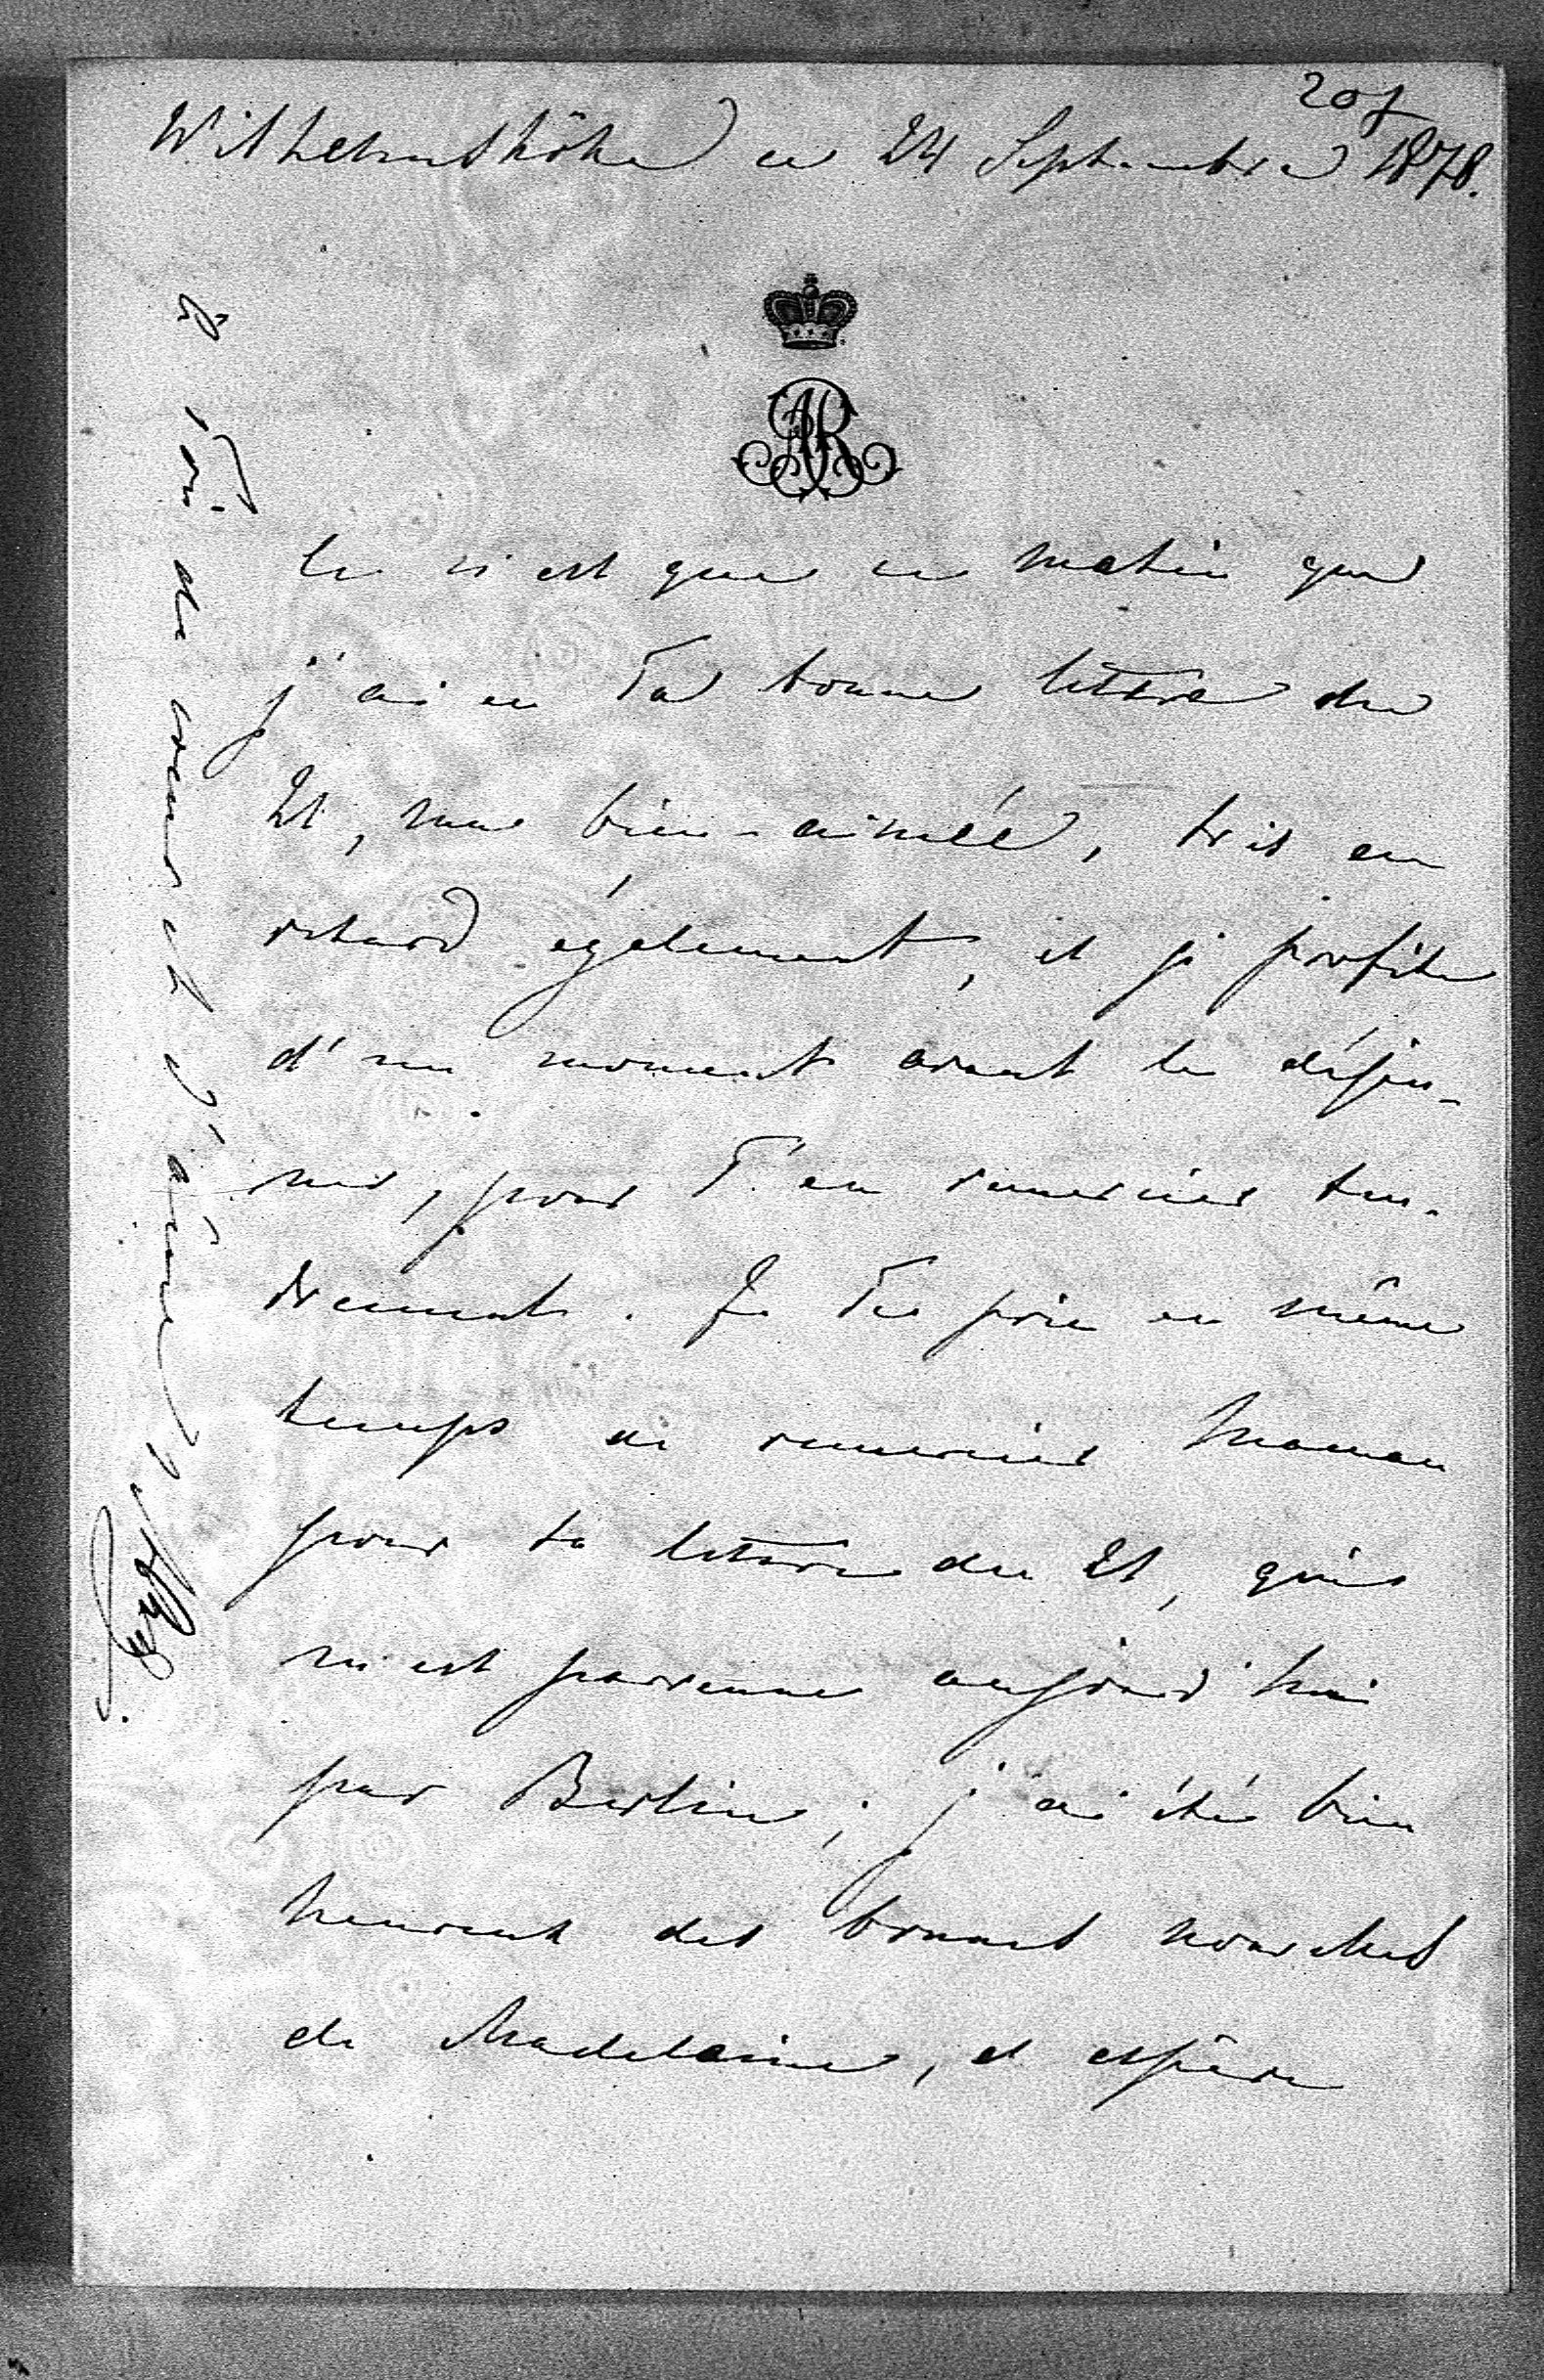 207
Wilhelmshöhe ce 24 Septembre 1878.
AR
Ce n'est que ce matin que
j'ai eu Ta bonne lettre du
21, ma bien-aimée, très en
retard également, et je profite
d'un moment avant le déjeu-
ner, pour T'en remercier ten-
drement. Je Te prie en même
temps de remercier Maman
pour sa lettre du 21, qui
m'est parvenue aujourd'hui
par Berlin; j'ai été bien
heureux des bonnes nouvelles
de Madelaine, et espère
à Toi de cœur et d'âme